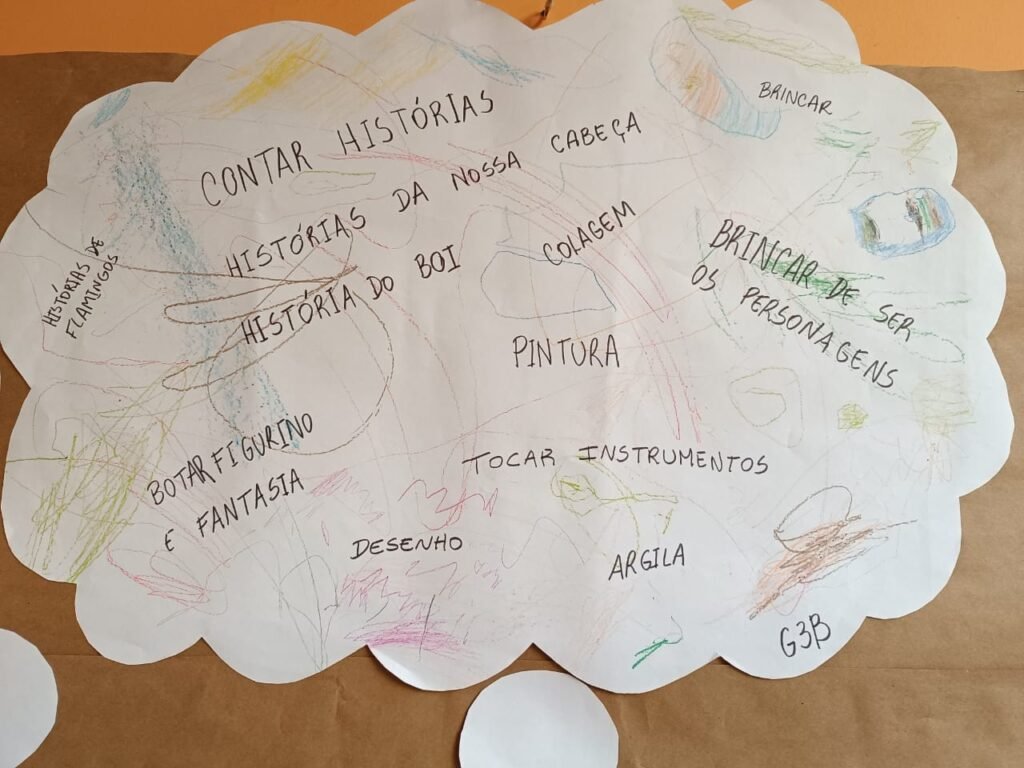 CONTAR HISTÓRIAS
BRINCAR
HISTÓRIAS DA NOSSA CABEÇA
HISTÓRIA DO BOI
COLAGEM
BRINCAR DE SER
OS PERSONAGENS
HISTÓRIAS DE
FLAMINGOS
PINTURA
BOTAR FIGURINO
E FANTASIA
TOCAR INSTRUMENTOS
DESENHO
ARGILA
G3B